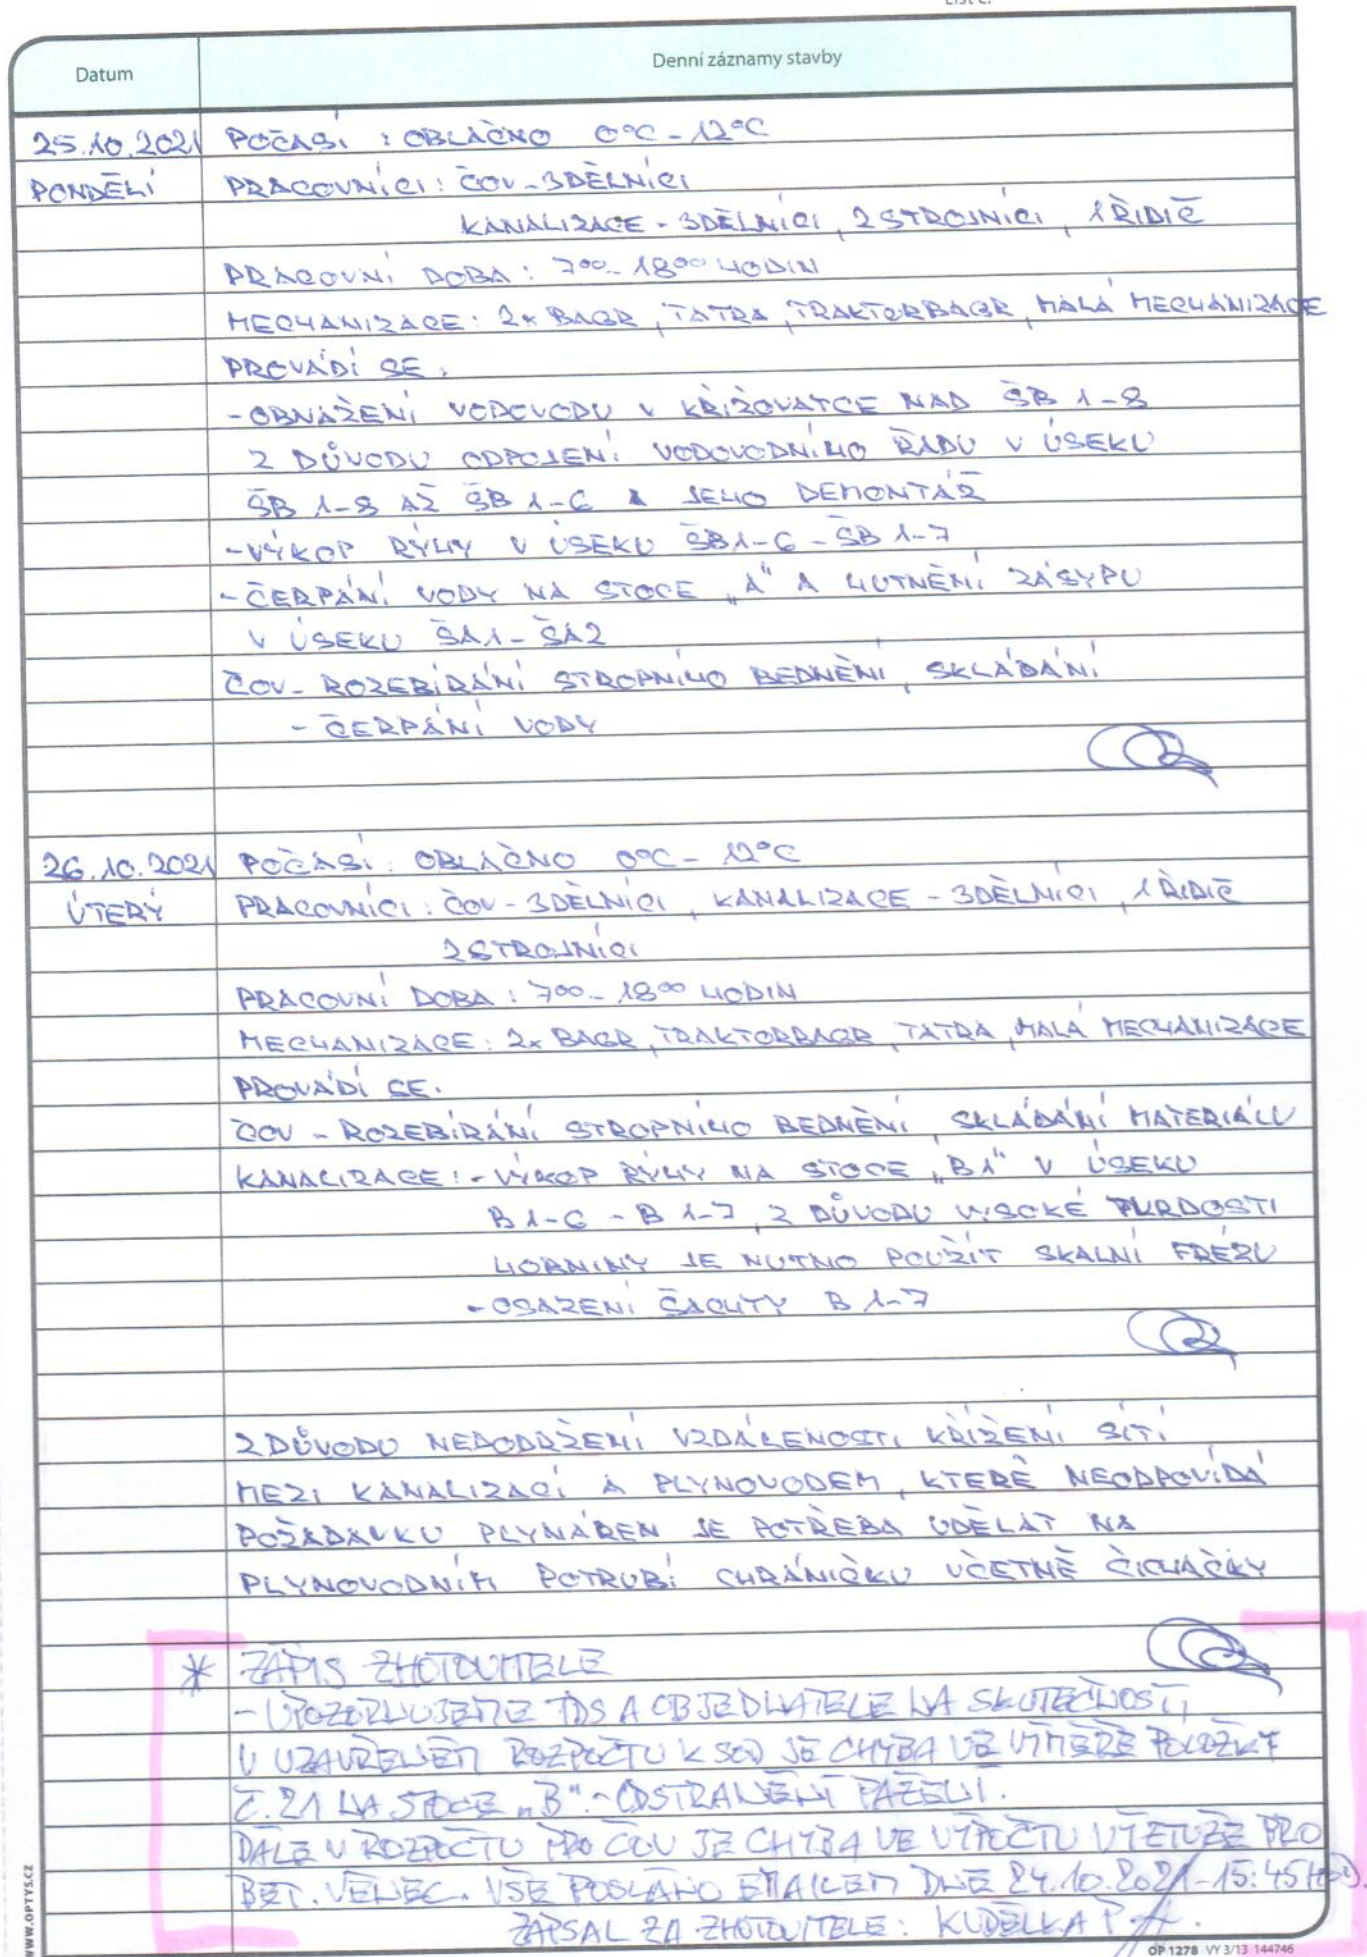 List č.
Datum
Denní záznamy stavby
25.10.2021 POČASÍ : OBLAČNO 0°C - 12°C
PONDĚLÍ PRACOVNÍCI : ČOV - 3 DĚLNÍCI
KANALIZACE - 3 DĚLNÍCI, 2 STROJNÍCI, 1 ŘIDIČ
PRACOVNÍ DOBA : 7⁰⁰ - 18⁰⁰ HODIN
MECHANIZACE : 2x BAGR, TATRA, TRAKTORBAGR, MALÁ MECHANIZACE
PROVÁDÍ SE :
- OBNAŽENÍ VODOVODU V KŘIŽOVATCE NAD ŠB 1-8
Z DŮVODU ODPOJENÍ VODOVODNÍHO ŘADU V ÚSEKU
ŠB 1-8 AŽ ŠB 1-6 A JEHO DEMONTÁŽ
- VÝKOP RÝHY V ÚSEKU ŠB1-6 - ŠB 1-7
- ČERPÁNÍ VODY NA STOCE „A" A HUTNĚNÍ ZÁSYPU
V ÚSEKU ŠA1 - ŠA2
ČOV - ROZEBÍRÁNÍ STROPNÍHO BEDNĚNÍ, SKLÁDÁNÍ
- ČERPÁNÍ VODY
26.10.2021 POČASÍ : OBLAČNO 0°C - 12°C
ÚTERÝ PRACOVNÍCI : ČOV - 3 DĚLNÍCI, KANALIZACE - 3 DĚLNÍCI, 1 ŘIDIČ
2 STROJNÍCI
PRACOVNÍ DOBA : 7⁰⁰ - 18⁰⁰ HODIN
MECHANIZACE : 2x BAGR, TRAKTORBAGR, TATRA, MALÁ MECHANIZACE
PROVÁDÍ SE :
ČOV - ROZEBÍRÁNÍ STROPNÍHO BEDNĚNÍ, SKLÁDÁNÍ MATERIÁLU
KANALIZACE : - VÝKOP RÝHY NA STOCE „B1" V ÚSEKU
B 1-6 - B 1-7, Z DŮVODU VYSOKÉ TVRDOSTI
HORNINY JE NUTNO POUŽÍT SKALNÍ FRÉZU
- OSAZENÍ ŠACHTY B 1-7
Z DŮVODU NEDODRŽENÍ VZDÁLENOSTI KŘÍŽENÍ SÍTÍ
MEZI KANALIZACÍ A PLYNOVODEM, KTERÉ NEODPOVÍDÁ
POŽADAVKU PLYNÁREN JE POTŘEBA UDĚLAT NA
PLYNOVODNÍM POTRUBÍ CHRÁNIČKU VČETNĚ ČICHAČKY
* ZÁPIS ZHOTOVITELE
- UPOZORŇUJEME TDS A OBJEDNATELE NA SKUTEČNOST,
V UZAVŘENÉM ROZPOČTU K SOD JE CHYBA VE VÝMĚŘE POLOŽKY
Č. 21 NA STOCE „B" - ODSTRANĚNÍ PAŽENÍ.
DÁLE V ROZPOČTU PRO ČOV JE CHYBA VE VÝPOČTU VÝZTUŽE PRO
BET. VĚNEC. VŠE POSLÁNO EMAILEM DNE 24.10.2021 - 15:45 HOD.
ZAPSAL ZA ZHOTOVITELE : KUDĚLKA P.
WWW.OPTYS.CZ
OP 1278 VY 3/13 144746